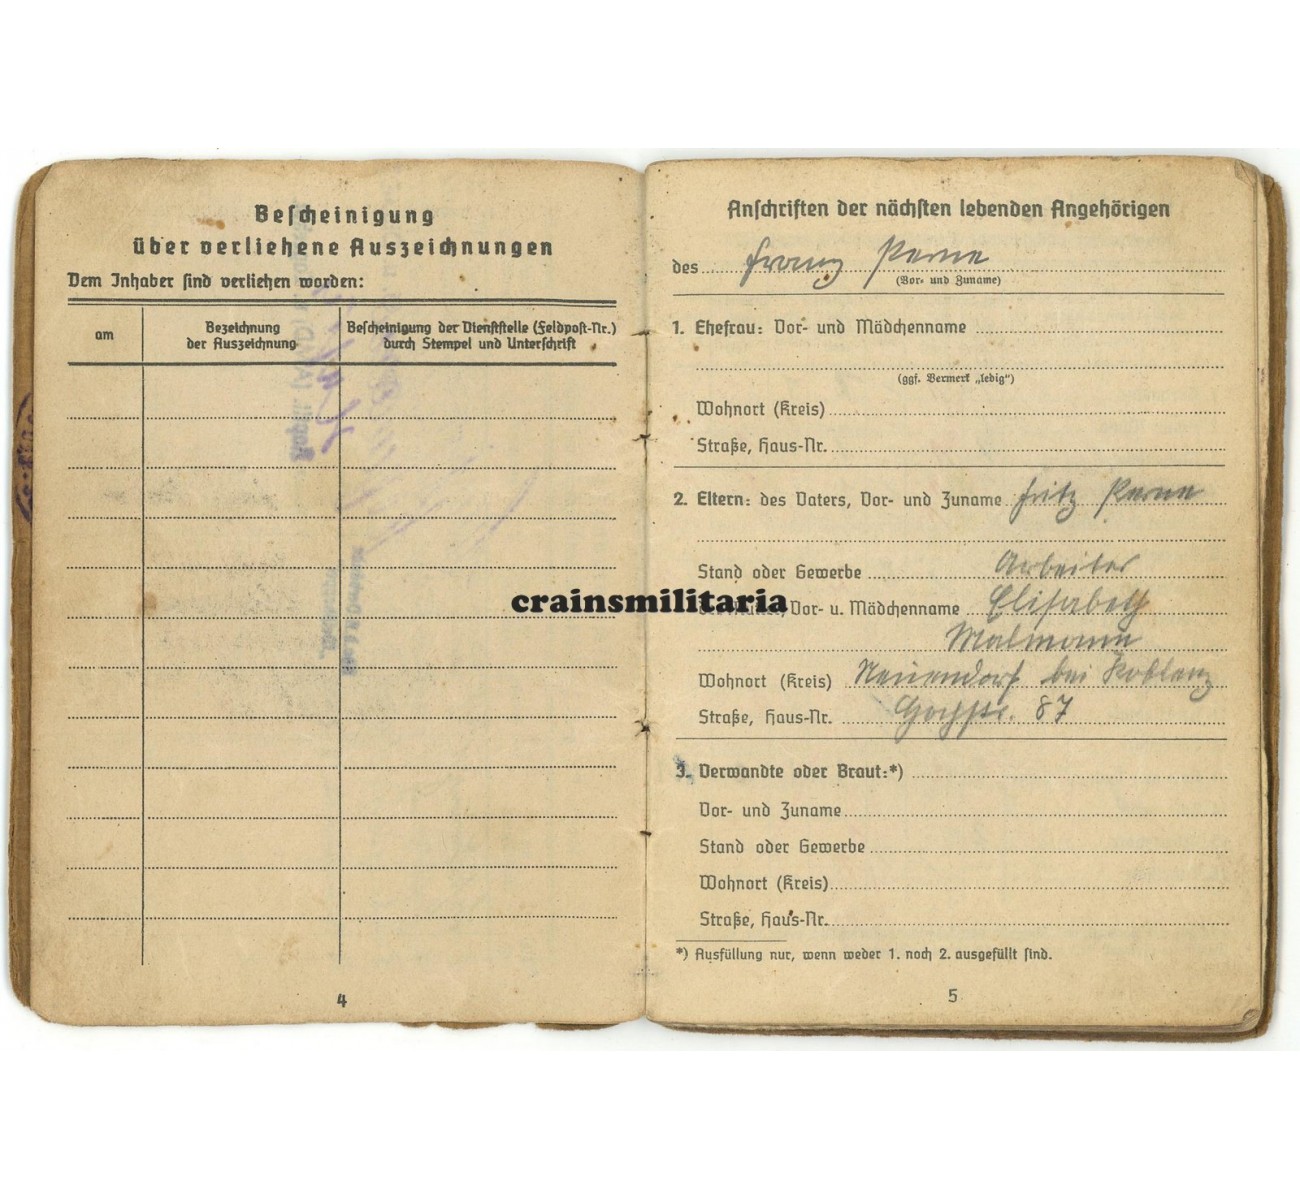 Bescheinigung
über verliehene Auszeichnungen
Dem Inhaber sind verliehen worden:
am
Bezeichnung
der Auszeichnung
Bescheinigung der Dienststelle (Feldpost-Nr.)
durch Stempel und Unterschrift
4
Anschriften der nächsten lebenden Angehörigen
des Franz Perne
(Vor- und Zuname)
1. Ehefrau: Vor- und Mädchenname
(ggf. Vermerk „ledig“)
Wohnort (Kreis)
Straße, Haus-Nr.
2. Eltern: des Vaters, Vor- und Zuname Fritz Perne
Stand oder Gewerbe Arbeiter
crainsmilitaria
Vor- u. Mädchenname Elisabeth
Malmann
Wohnort (Kreis) Neuendorf bei Koblenz
Straße, Haus-Nr. 87
3. Verwandte oder Braut:*)
Vor- und Zuname
Stand oder Gewerbe
Wohnort (Kreis)
Straße, Haus-Nr.
*) Ausfüllung nur, wenn weder 1. noch 2. ausgefüllt sind.
5